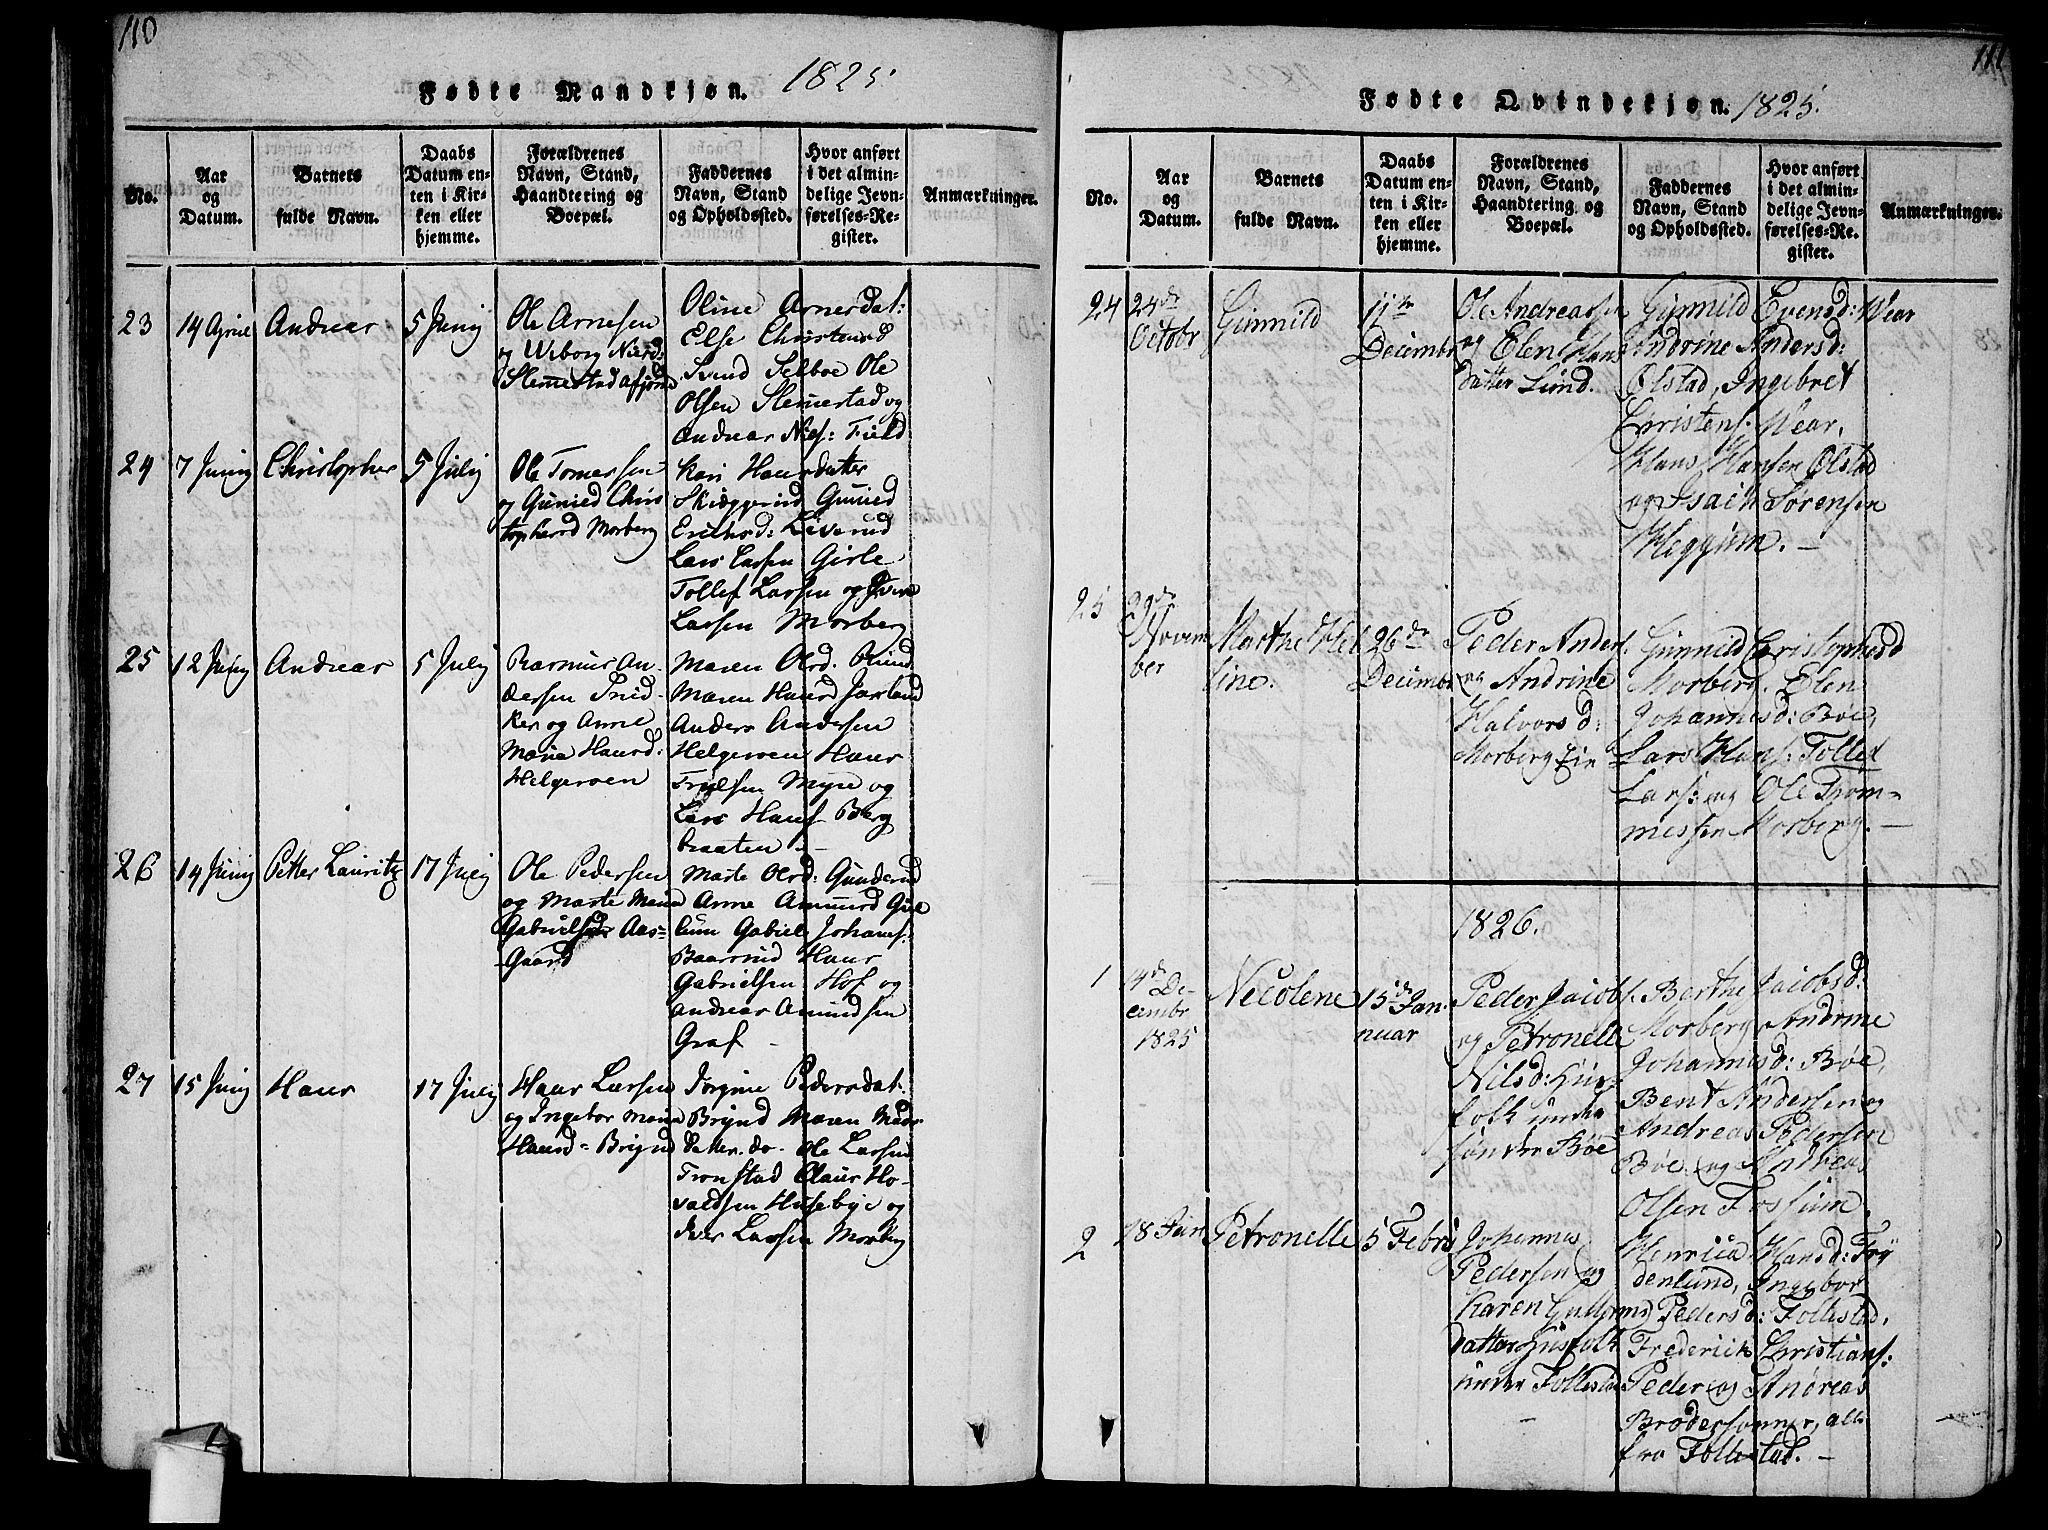 110
Fødte Mandkjøn. 1825.
No.
Aar
og
Datum.
Barnets
fulde Navn.
Daabs
Datum en-
ten i Kir-
ken eller
hjemme.
Forældrenes
Navn, Stand,
Haandtering og
Boepæl.
Faddernes
Navn, Stand
og Opholdssted.
Hvor anført
i det almin-
delige Jevn-
førelses-Re-
gister.
Anmærkninger.
23
14 April
Andreas
5 Junij
Ole Arnesen
og Wiborg Nielsd:
Slemmestad
Oline Arnesdat:
Else Christensd
Selboe Ole
Olsen Slemestad og
Andreas Niels: Field
24
7 Junij
Christopher
5 Julij
Ole Tomessen
og Guniled Chris
tophersd Morberg
Kari Hansdatter
Skiøggerud Guniled
Erichsd: Liverud
Lars Larsen Gisle
Tollef Larsen og Iver
Larsen Morberg
25
12 Junij
Andreas
5 Julij
Rasmus An-
dersen Snid-
ker og Anne
Maria Hansd:
Helgeroen
Maren Olsd.
Maren Hansd
Anders Andersen
Helgeroen Hans
Myre og
Lars Hans Berg
braaten
26
14 Junij
Petter Lauritz
17 Julij
Ole Pedersen
og Marte Maria
Gabrielsd Aas-
Gaard
Marte Olsd: Gunderud
Anne Amunds Gul
lum Gabriel Johans:
Baarsrud Hans
Gabrielsen Hof og
Andreas Amundsen
Graf
27
15 Junij
Hans
17 Julij
Hans Larsen
og Ingebor Maria
Hansd Brijnd
Jorgine Pedersdat.
Brijnd Maren Mads
datter. do. Ole Larsen
Tronstad Claus Ho-
valdsen Husebye og
Iver Larsen Morberg
111
Fødte Qvindekjøn. 1825.
No.
Aar
og
Datum.
Barnets
fulde Navn.
Daabs
Datum en-
ten i Kir-
ken eller
hjemme.
Forældrenes
Navn, Stand,
Haandtering og
Boepæl.
Faddernes
Navn, Stand
og Opholdssted.
Hvor anført
i det almin-
delige Jevn-
førelses-Re-
gister.
Anmærkninger.
24
24de
Octobr
Gunnild
11te
Decembr
Ole Andreassen
og Elen Hans
datter Lund.
Gunnild Evensd: Wear
Indrine Andersd:
Ølstad, Ingebret
Christens. Wear,
Hans Hansen Ølstad
og Isach Sørensen
Heggum. —
25
29de
Novem
ber
Marthe Hel
sine.
26de
Decembr
Peder Anders.
og Andrine
Halvorsd:
Morberg Eie
Gunnild Cristophersd
Morberg. Elen
Johannesd: Bøe,
Lars Hans: Tollef
Lars: og Ole Thom-
messen Morberg. —
1826.
1
4de De-
cembr
1825
Nicolene
15de Jan-
nuar
Peder Jacobs.
og Petronelle
Nilsd: Huus-
folk under
søndre Bøe
Berthe Jacobsd:
Morberg, Andrine
Johannesd: Bøe,
Bent Andersen og
Andreas Pedersen
Bøe og Andreas
Olsen Fossum.
2
18 Jan
Petronelle
5 Febrj
Johannes
Pedersen og
Karen Gulbrands
datter Huusfolk
under Follestad
Henrica Hansd: Fry
denlund, Ingebor
Pedersd: Follestad,
Frederick Christians:
Peder og Andreas
Brodersønner, alle
fra Follestad. —